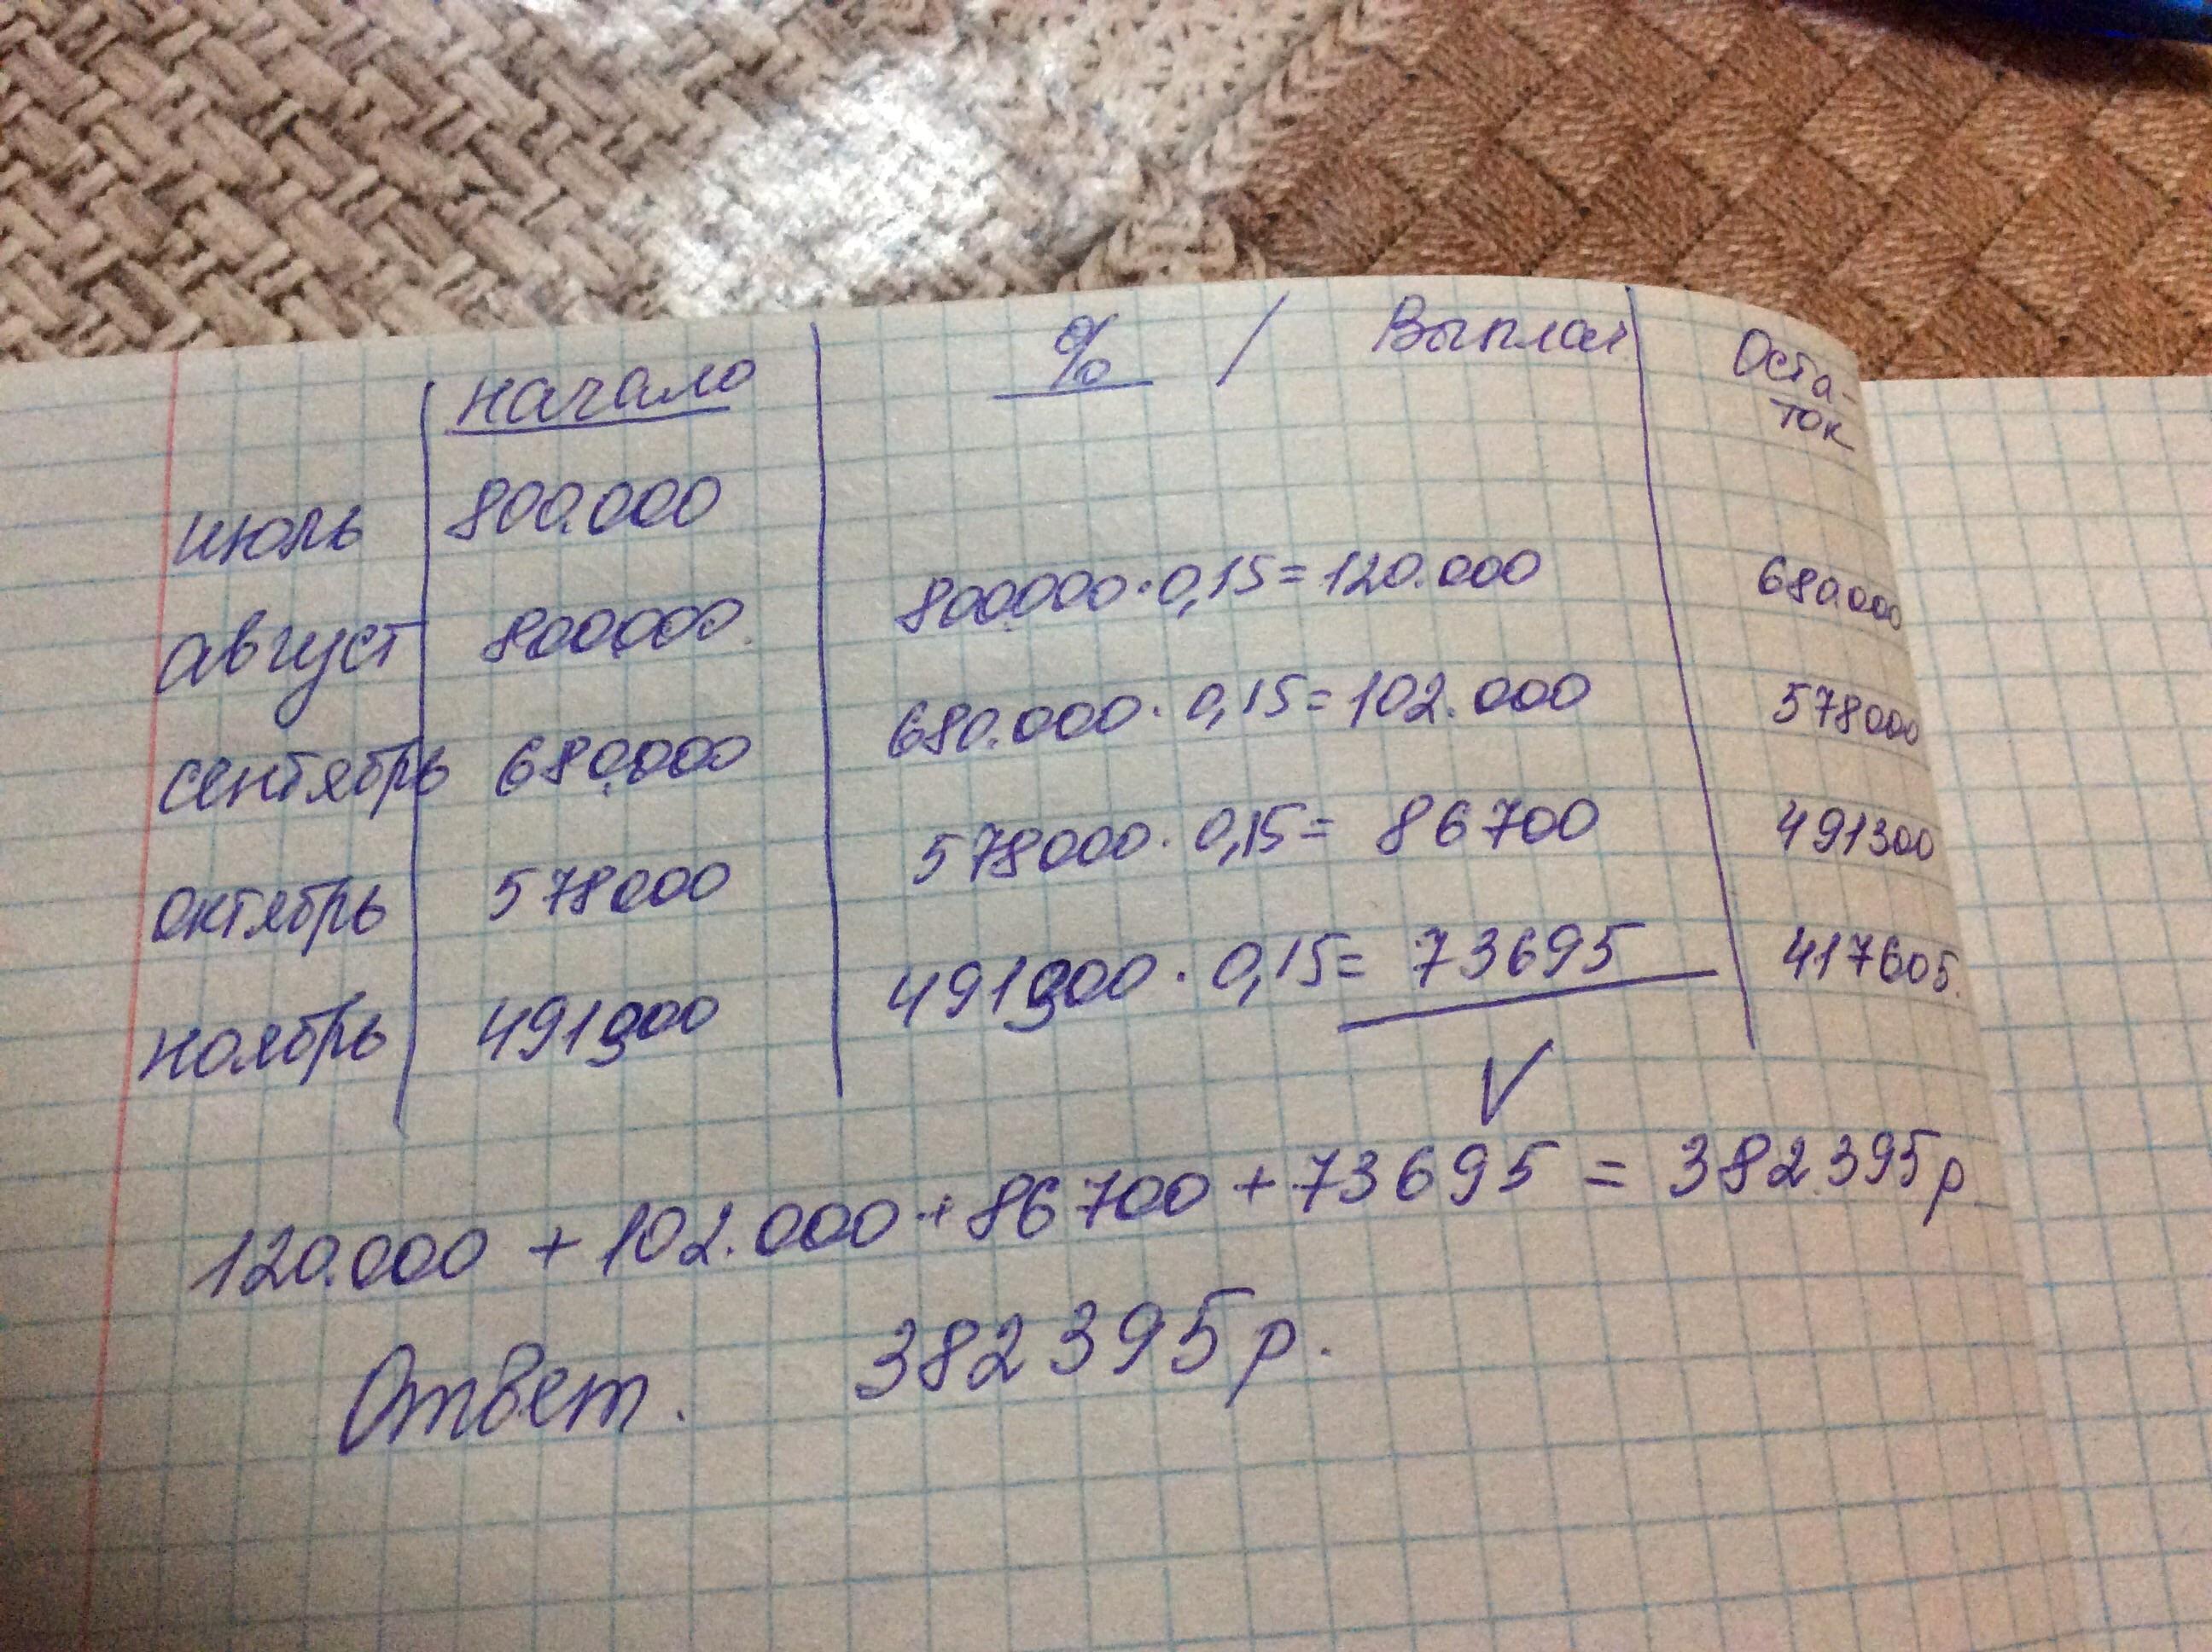 начало % / Выплат Оста-
ток
июль 800.000
август 800000. 800000·0,15=120.000 680.000
сентябрь 680.000 680.000·0,15=102.000 578000
октябрь 578000 578000·0,15= 86700 491300
ноябрь 491300 491300·0,15= 73695 417605.
120.000 + 102.000 + 86700 + 73695 = 382.395р
Ответ. 382395р.